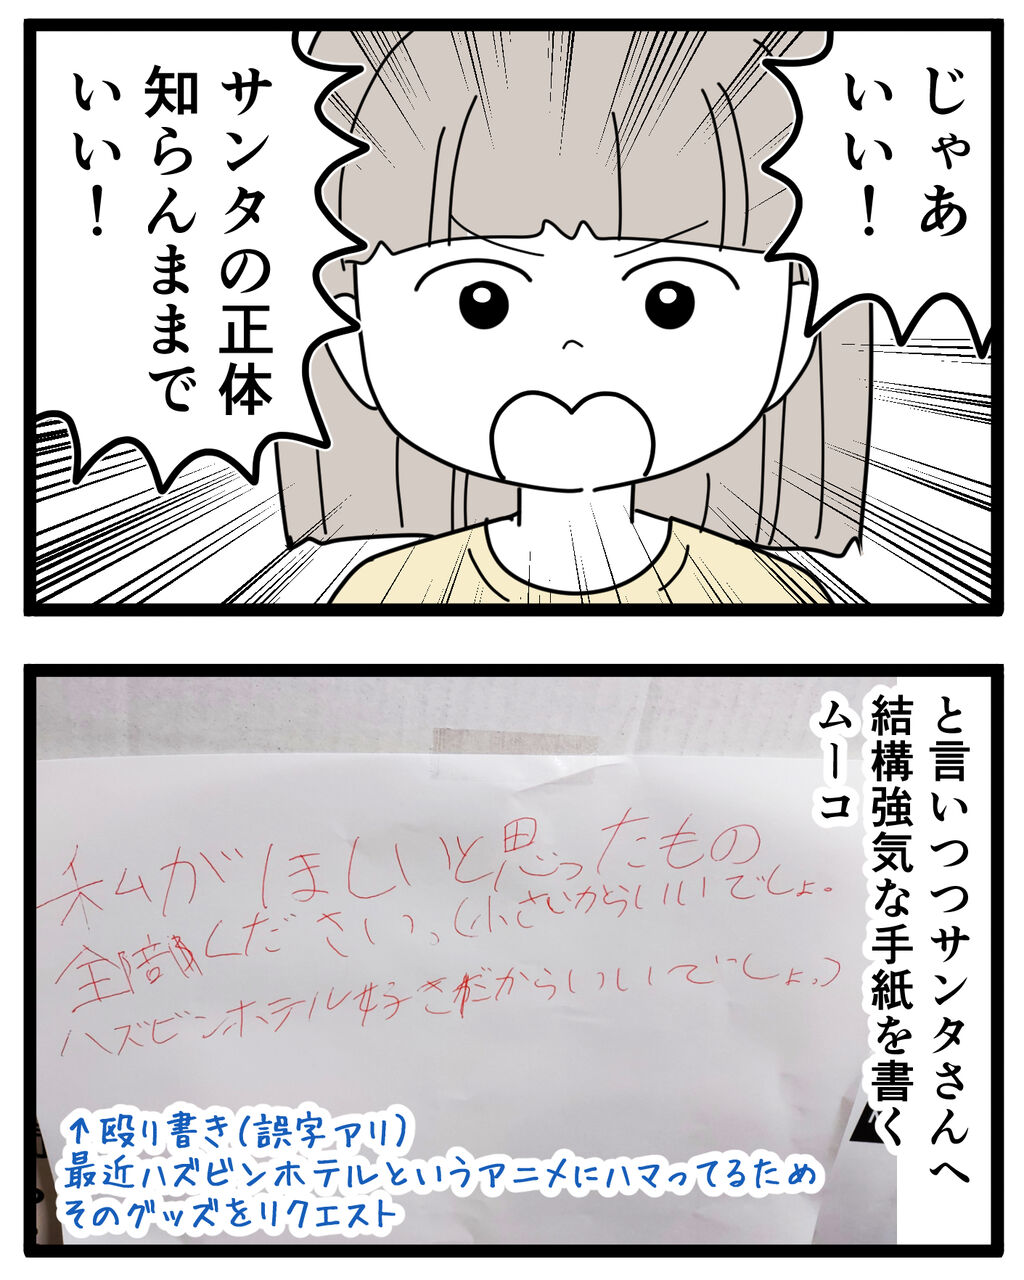 じゃあ
いい！
サンタの正体
知らんままで
いい！
と言いつつサンタさんへ
結構強気な手紙を書く
ムーコ
私がほしいと思ったもの
全部ください。(小さいからいいでしょ。
ハズビンホテル好きだからいいでしょっ)
↑殴り書き(誤字アリ)
最近ハズビンホテルというアニメにハマってるため
そのグッズをリクエスト